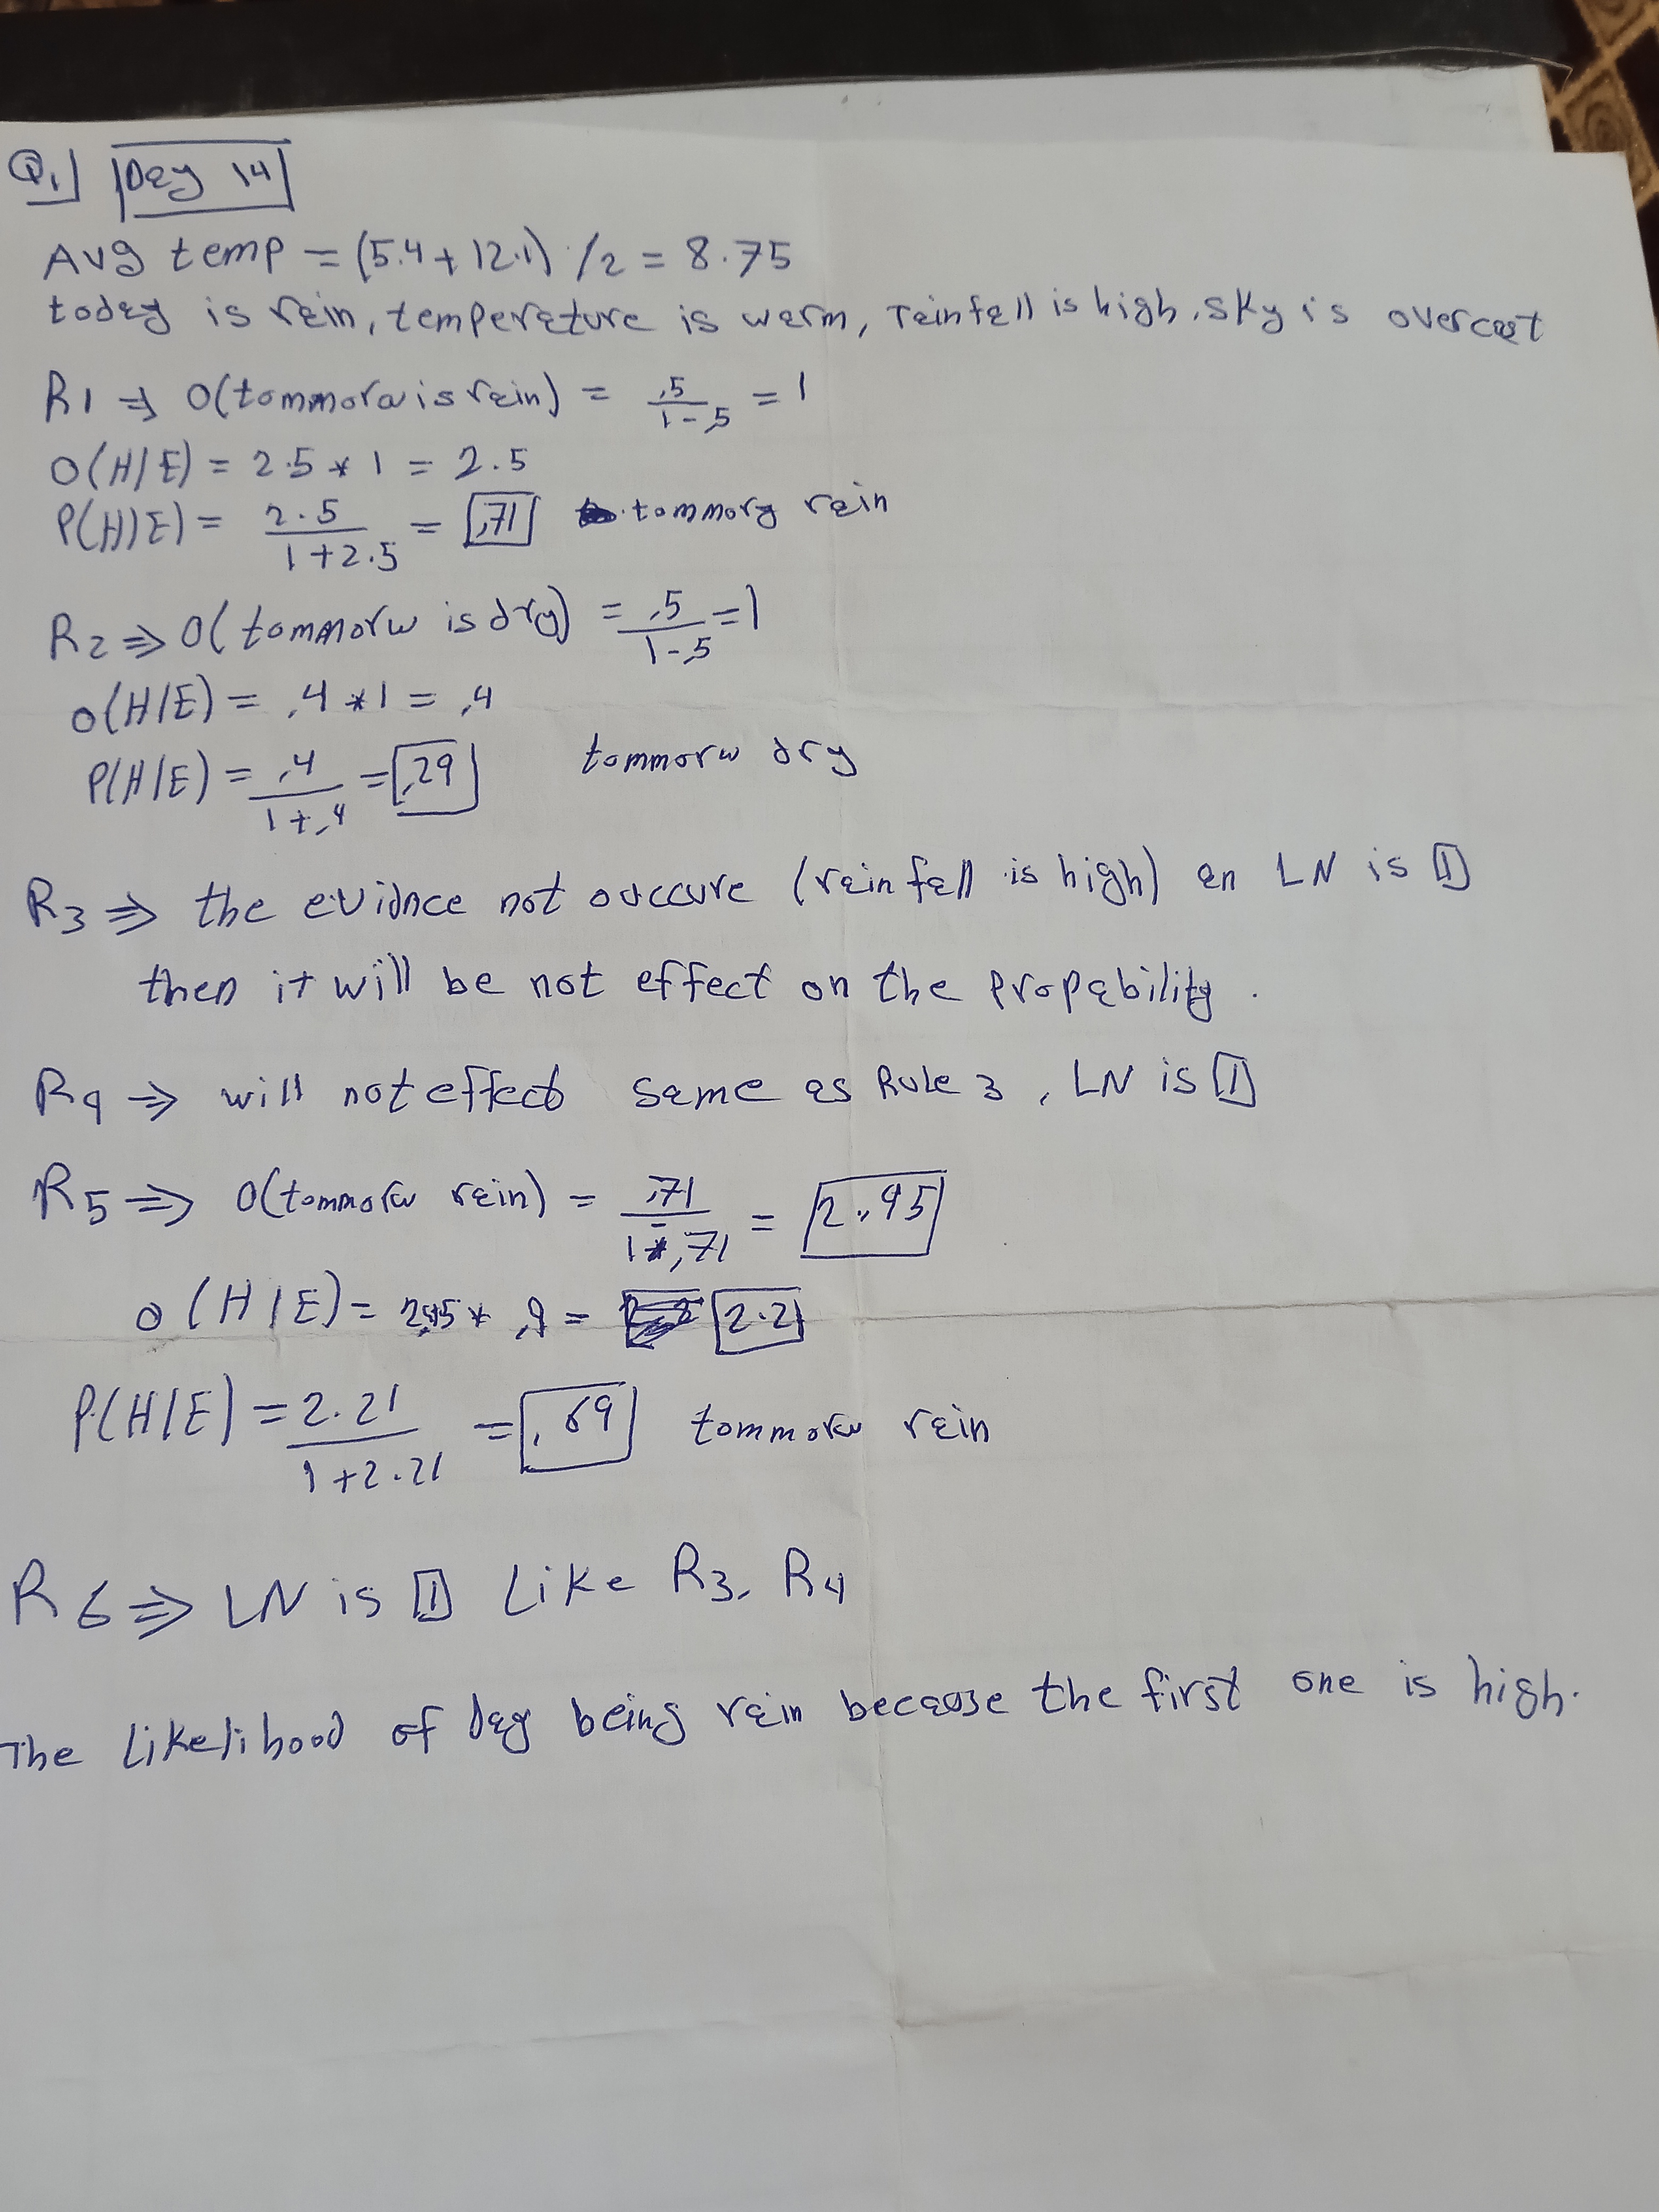 Q1 Day 14
Avg temp = (5.4 + 12.1) /2 = 8.75
today is rain, temperature is warm, rainfall is high, sky is overcast
R1 ⇒ O(tommorw is rain) = .5 / 1-.5 = 1
O(H/E) = 2.5 * 1 = 2.5
P(H/E) = 2.5 / 1+2.5 = .71 tommory rain
R2 ⇒ O(tommorw is dry) = .5 / 1-.5 = 1
O(H/E) = .4 * 1 = .4
P(H/E) = .4 / 1+.4 = .29 tommorw dry
R3 ⇒ the evidnce not ouccure (rainfall is high) an LN is 1
then it will be not effect on the propability.
R4 ⇒ will not effect same as Rule 3, LN is 1
R5 ⇒ O(tommorw rain) = .71 / 1-.71 = 2.45
O(H/E) = 2.45 * .9 = 2.21
P(H/E) = 2.21 / 1+2.21 = .69 tommorw rain
R6 ⇒ LN is 1 Like R3, R4
The Likelihood of day being rain because the first one is high.